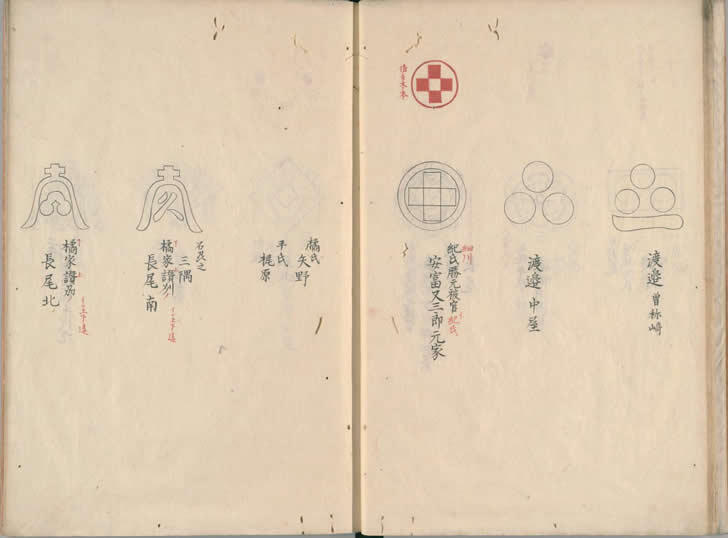 渡邉 曽祢﨑
渡邉 中屋
紀氏 勝元被官 紀氏
安富又三郎元家
細川
橘氏
矢野
平氏
梶原
石見之
三隅
橘家 讃刕
長尾 南
橘家 讃刕
長尾 北